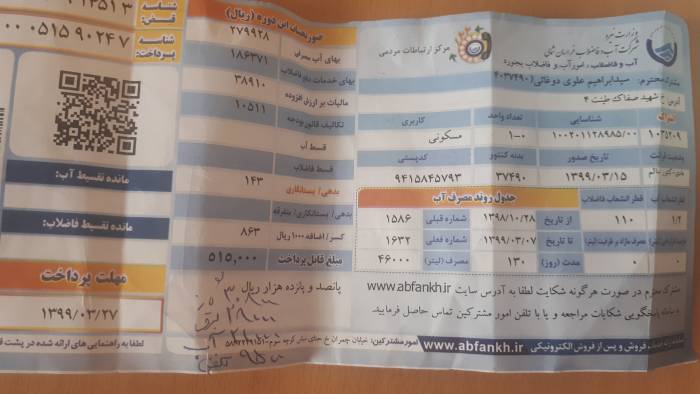 وزارت نیرو
شرکت آب و فاضلاب خراسان شمالی
مرکز ارتباطات مردمی
مشترک محترم: سیدابراهیم علوی دوغائی (۴۰۳۷۴۹۰)
شناسایی
تعداد واحد
کاربری
۱۰۳۵۲۰۹
۱۰۰۲۰۱۱۲۸۹۸۵/۰۰
۱-۰
مسکونی
تاریخ صدور
بدنه کنتور
کدپستی
۱۳۹۹/۰۳/۱۵
۳۷۴۹۰
۹۴۱۵۸۴۵۷۹۳
قطر انشعاب آب
قطر انشعاب فاضلاب
جدول روند مصرف آب
۱/۲
۱۱۰
از تاریخ
۱۳۹۸/۱۰/۲۸
شماره قبلی
۱۵۸۶
تا تاریخ
۱۳۹۹/۰۳/۰۷
شماره فعلی
۱۶۳۲
۰
۰
مدت (روز)
۱۳۰
مصرف (لیتر)
۴۶۰۰۰
مشترک محترم در صورت هرگونه شکایت لطفا به آدرس سایت www.abfankh.ir
سامانه پاسخگویی شکایات مراجعه و یا با تلفن امور مشترکین تماس حاصل فرمایید.
فروش و پس از فروش الکترونیکی www.abfankh.ir
امور مشترکین:
صورتحساب این دوره (ریال)
بهای آب مصرفی
۲۷۹۹۲۸
بهای خدمات دفع فاضلاب
۱۸۶۳۷۱
مالیات بر ارزش افزوده
۳۸۹۱۰
تکالیف قانون بودجه
۱۰۵۱۱
قسط آب
قسط فاضلاب
بدهی/ بستانکاری
۱۴۳
بدهی/ بستانکاری/ متفرقه
کسر/ اضافه ۱۰۰۰ ریال
۸۶۳
مبلغ قابل پرداخت
۵۱۵,۰۰۰
پانصد و پانزده هزار ریال
شناسه قبض:
شناسه پرداخت:
مانده تقسیط آب:
مانده تقسیط فاضلاب:
مهلت پرداخت
۱۳۹۹/۰۳/۲۷